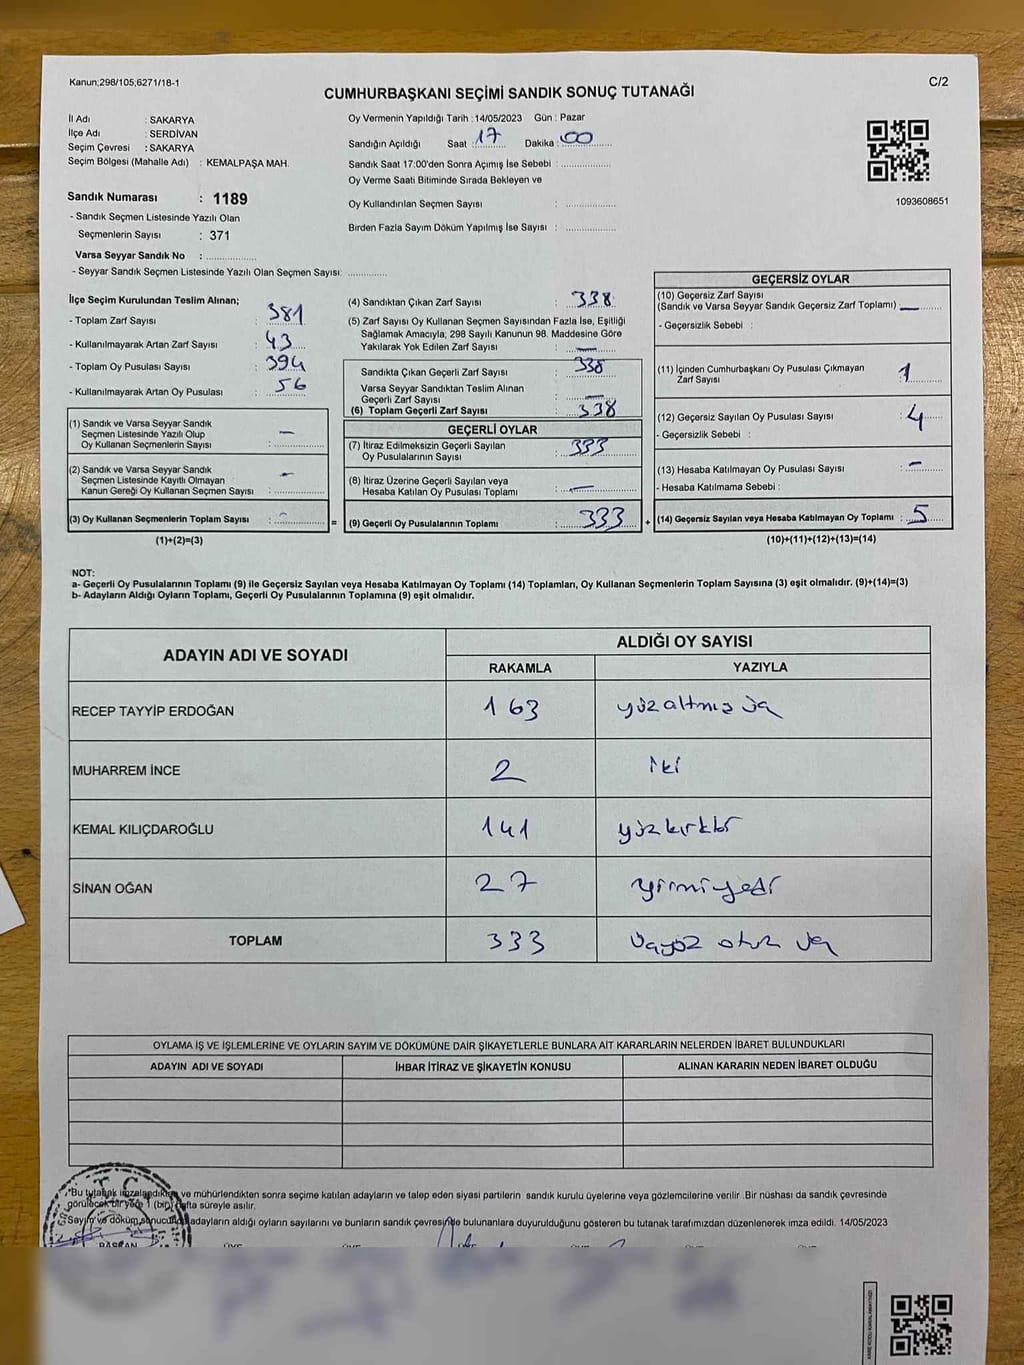 Kanun;298/105;6271/18-1
C/2
CUMHURBAŞKANI SEÇİMİ SANDIK SONUÇ TUTANAĞI
İl Adı : SAKARYA
İlçe Adı : SERDİVAN
Seçim Çevresi : SAKARYA
Seçim Bölgesi (Mahalle Adı) : KEMALPAŞA MAH.
Sandık Numarası : 1189
- Sandık Seçmen Listesinde Yazılı Olan
Seçmenlerin Sayısı : 371
Varsa Seyyar Sandık No :
- Seyyar Sandık Seçmen Listesinde Yazılı Olan Seçmen Sayısı:
Oy Vermenin Yapıldığı Tarih : 14/05/2023 Gün : Pazar
Sandığın Açıldığı Saat : 17 Dakika : 00
Sandık Saat 17:00'den Sonra Açımış İse Sebebi :
Oy Verme Saati Bitiminde Sırada Bekleyen ve
Oy Kullandırılan Seçmen Sayısı :
Birden Fazla Sayım Döküm Yapılmış İse Sayısı :
1093608651
İlçe Seçim Kurulundan Teslim Alınan;
- Toplam Zarf Sayısı : 381
- Kullanılmayarak Artan Zarf Sayısı : 43
- Toplam Oy Pusulası Sayısı : 394
- Kullanılmayarak Artan Oy Pusulası : 56
(1) Sandık ve Varsa Seyyar Sandık
Seçmen Listesinde Yazılı Olup
Oy Kullanan Seçmenlerin Sayısı : —
(2) Sandık ve Varsa Seyyar Sandık
Seçmen Listesinde Kayıtlı Olmayan
Kanun Gereği Oy Kullanan Seçmen Sayısı : —
(3) Oy Kullanan Seçmenlerin Toplam Sayısı : -
=
(1)+(2)=(3)
(4) Sandıktan Çıkan Zarf Sayısı : 338
(5) Zarf Sayısı Oy Kullanan Seçmen Sayısından Fazla İse, Eşitliği
Sağlamak Amacıyla; 298 Sayılı Kanunun 98. Maddesine Göre
Yakılarak Yok Edilen Zarf Sayısı : —
Sandıkta Çıkan Geçerli Zarf Sayısı : 338
Varsa Seyyar Sandıktan Teslim Alınan
Geçerli Zarf Sayısı : —
(6) Toplam Geçerli Zarf Sayısı : 338
GEÇERLİ OYLAR
(7) İtiraz Edilmeksizin Geçerli Sayılan
Oy Pusulalarının Sayısı : 333
(8) İtiraz Üzerine Geçerli Sayılan veya
Hesaba Katılan Oy Pusulası Toplamı : —
(9) Geçerli Oy Pusulalarının Toplamı : 333
+
GEÇERSİZ OYLAR
(10) Geçersiz Zarf Sayısı
(Sandık ve Varsa Seyyar Sandık Geçersiz Zarf Toplamı) : —
- Geçersizlik Sebebi :
(11) İçinden Cumhurbaşkanı Oy Pusulası Çıkmayan
Zarf Sayısı : 1
(12) Geçersiz Sayılan Oy Pusulası Sayısı : 4
- Geçersizlik Sebebi :
(13) Hesaba Katılmayan Oy Pusulası Sayısı : —
- Hesaba Katılmama Sebebi :
(14) Geçersiz Sayılan veya Hesaba Katılmayan Oy Toplamı : 5
(10)+(11)+(12)+(13)=(14)
NOT:
a- Geçerli Oy Pusulalarının Toplamı (9) ile Geçersiz Sayılan veya Hesaba Katılmayan Oy Toplamı (14) Toplamları, Oy Kullanan Seçmenlerin Toplam Sayısına (3) eşit olmalıdır. (9)+(14)=(3)
b- Adayların Aldığı Oyların Toplamı, Geçerli Oy Pusulalarının Toplamına (9) eşit olmalıdır.
ADAYIN ADI VE SOYADI
ALDIĞI OY SAYISI
RAKAMLA YAZIYLA
RECEP TAYYİP ERDOĞAN 163 yüzaltmış üç
MUHARREM İNCE 2 iki
KEMAL KILIÇDAROĞLU 141 yüzkırkbir
SİNAN OĞAN 27 yirmiyedi
TOPLAM 333 üçyüz otuz üç
OYLAMA İŞ VE İŞLEMLERİNE VE OYLARIN SAYIM VE DÖKÜMÜNE DAİR ŞİKAYETLERLE BUNLARA AİT KARARLARIN NELERDEN İBARET BULUNDUKLARI
ADAYIN ADI VE SOYADI İHBAR İTİRAZ VE ŞİKAYETİN KONUSU ALINAN KARARIN NEDEN İBARET OLDUĞU
T.C.
*Bu tutanak imzalandıktan ve mühürlendikten sonra seçime katılan adayların ve talep eden siyasi partilerin sandık kurulu üyelerine veya gözlemcilerine verilir .Bir nüshası da sandık çevresinde
görülecek bir yere 1 (bir) hafta süreyle asılır.
Sayım ve döküm sonucunda adayların aldığı oyların sayılarını ve bunların sandık çevresinde bulunanlara duyurulduğunu gösteren bu tutanak tarafımızdan düzenlenerek imza edildi. 14/05/2023
BAŞKAN